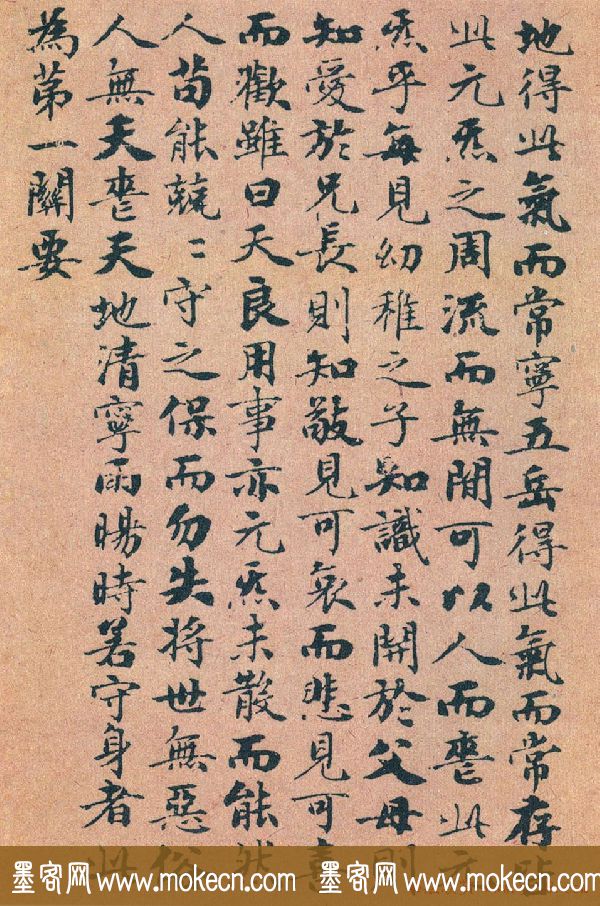 地得此氣而常寧五岳得此氣而常存皆
此元炁之周流而無間可以人而喪此元
炁乎每見幼稚之子知識未開於父母則
知愛於兄長則知敬見可哀而悲見可喜
而歡雖曰天良用事亦元炁未散而能然
人苟能兢〻守之保而勿失將世無惡俗
人無天喪天地清寧雨暘時若守身者此
為第一關要
墨客网 www.mokecn.com 墨客网 www.mokecn.com